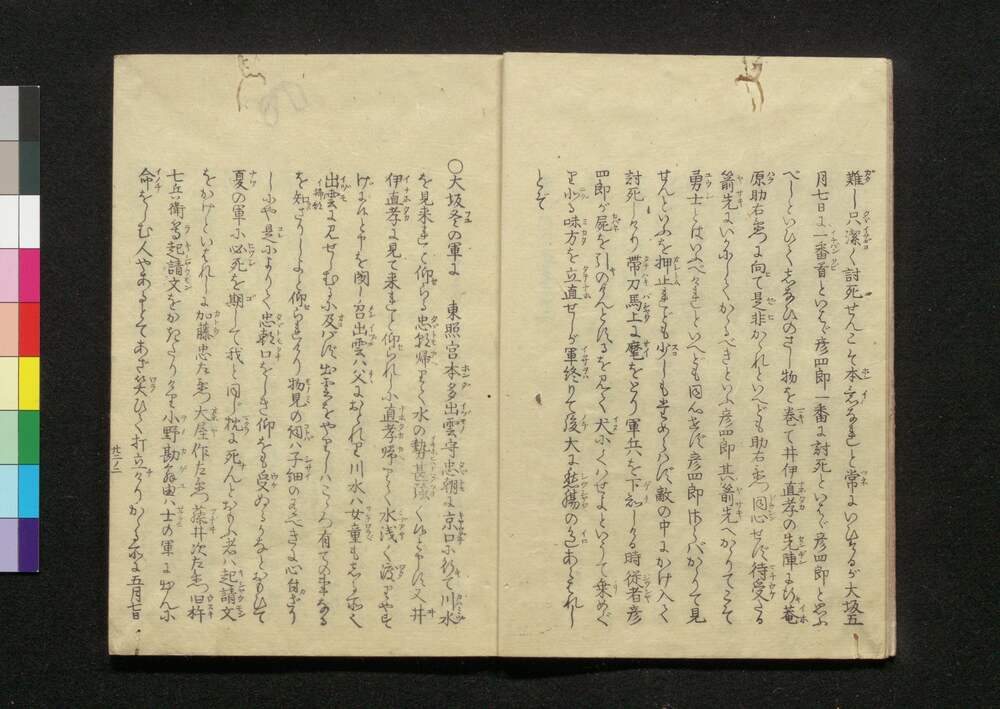 難し只潔く討死せんこそ本意なれと常にいひけるが大坂五
月七日に一番首といはゞ彦四郎一番に討死といはゞ彦四郎と思ふ
べしといひてしなひのさし物を巻て井伊直孝の先陣に行菴
原助右衛門に向て是非かくれといへども助右衛門同心せず待受たる
箭先にいかにしてかかるべきといふ彦四郎其箭先へかゝりてこそ
勇士とはいふべけれといへども同心せず彦四郎はしりかゝりて見
せんといふを押止れども少しも
討死しけり帯刀馬上に麾をとり軍兵を下知しける時従者彦
四郎が屍を引のけんとするを見て犬にくはせよといひて乗めぐ
り味方を立直せしが軍終りて後大に愁傷の色あらはれし
とぞ
○大坂冬の軍に 東照宮本多出雲守忠朝に京口に於て川水
を見来れと仰らる忠朝帰りて水の勢甚深くと申す又井
伊直孝に見て来れと仰られしに直孝帰りて水浅く渡りやす
げに候と申を聞し召出雲は父におとれり川水は女童もしる所也
出雲に見せしむるに及ばず出雲をやりしはこゝろ有ての事なる
を知ざりしよと仰られけり物見の節は子細の有べきに心付ざり
しにや是によりて忠朝口をしき仰をも受ぬるかなとおもひて
夏の軍に必死を期して我と同し枕に死んとおもふ者は起請文
をかけといはれしに加藤忠左衛門大屋作左衛門藤井次左衛門臼杵
七兵衛等起請文をかきたりけり小野勘解由は士の軍に出んに
命をしむ人やあるとてあざ笑ひて打立けりかゝる所に五月七日